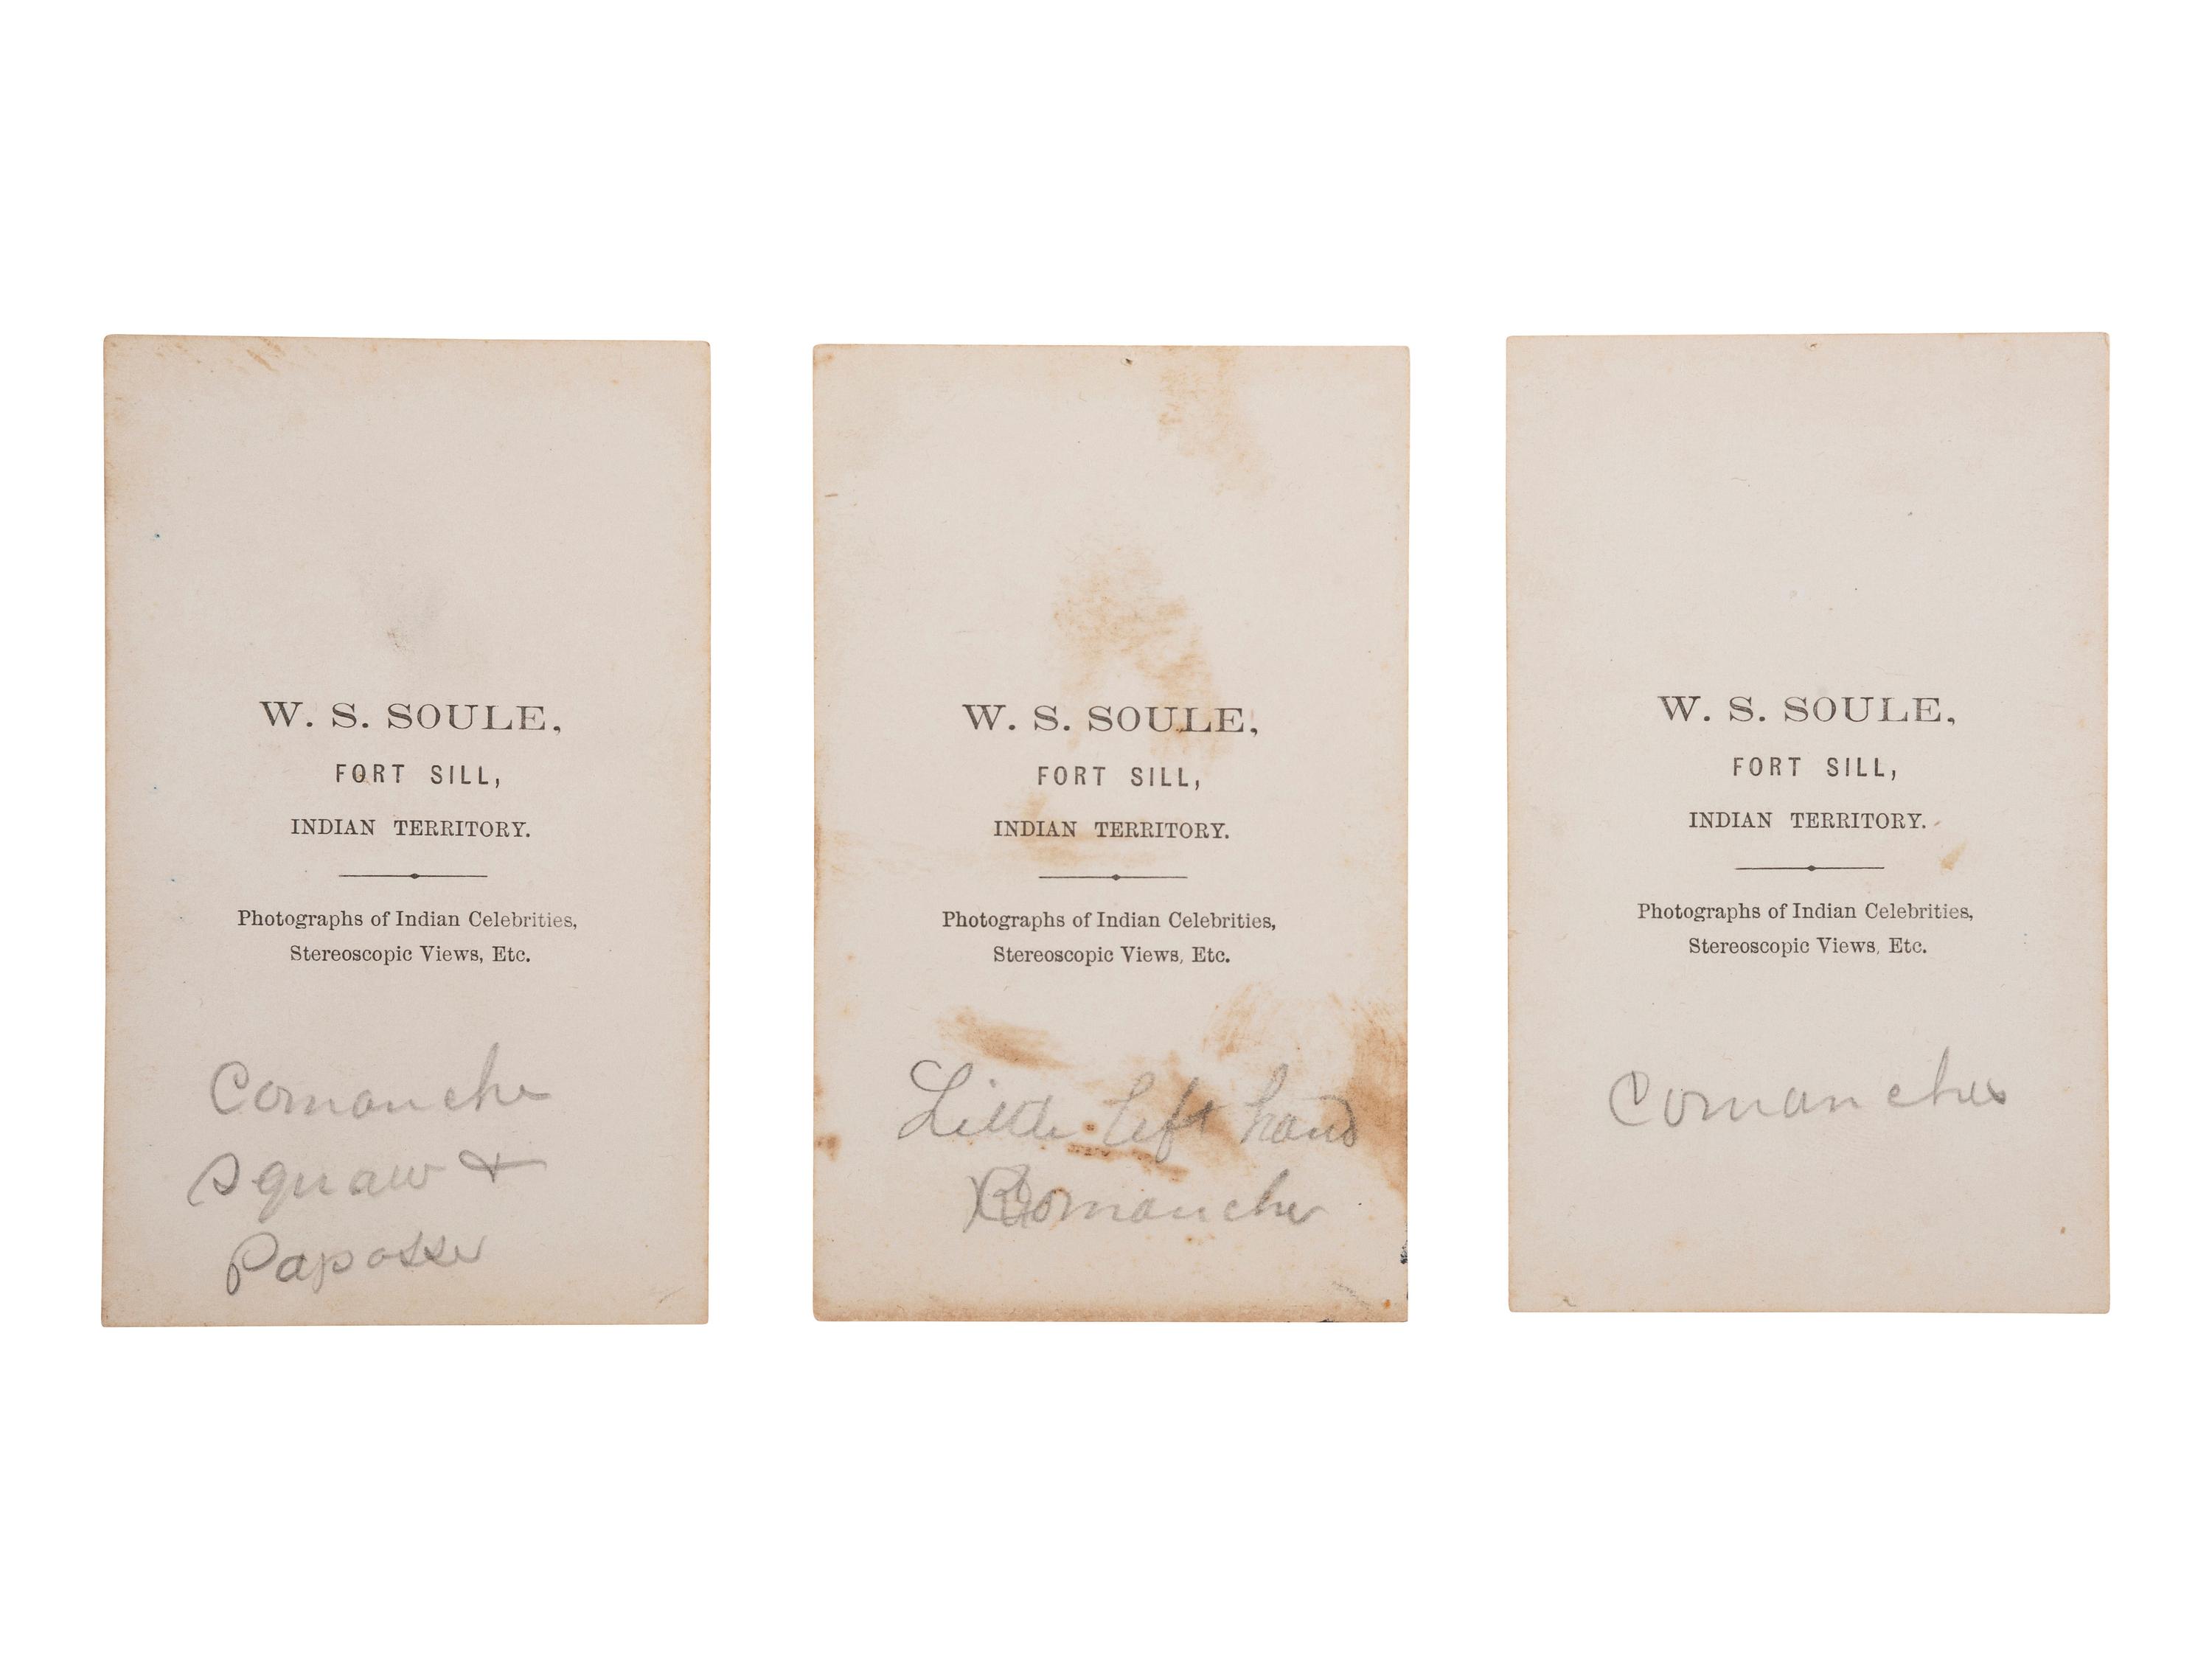 W. S. SOULE,
FORT SILL,
INDIAN TERRITORY.
Photographs of Indian Celebrities,
Stereoscopic Views, Etc.
Comanche
Squaw &
Paposse
W. S. SOULE,
FORT SILL,
INDIAN TERRITORY.
Photographs of Indian Celebrities,
Stereoscopic Views, Etc.
Little left hand
Comanche
W. S. SOULE,
FORT SILL,
INDIAN TERRITORY.
Photographs of Indian Celebrities,
Stereoscopic Views, Etc.
Comanches